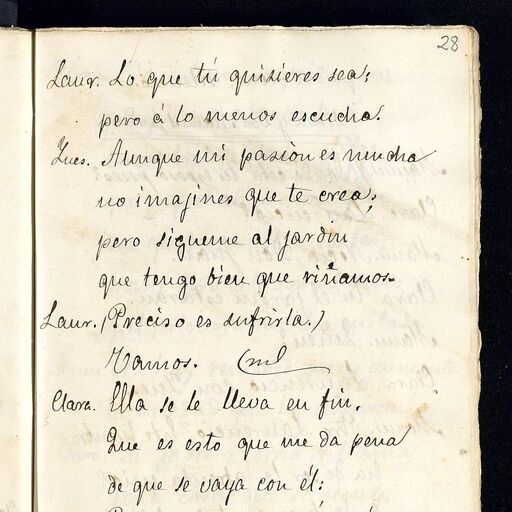 28
Laur. Lo que tú quisieres sea;
pero á lo menos escucha.
Ynes. Aunque mi pasion es mucha
no imajines que te crea;
pero sigueme al jardin
que tengo bien que riñamos.
Laur. (Preciso es sufrirla.)
Vamos.
Clara. Ella se le lleva en fin.
Que es esto que me da pena
de que se vaya con él: